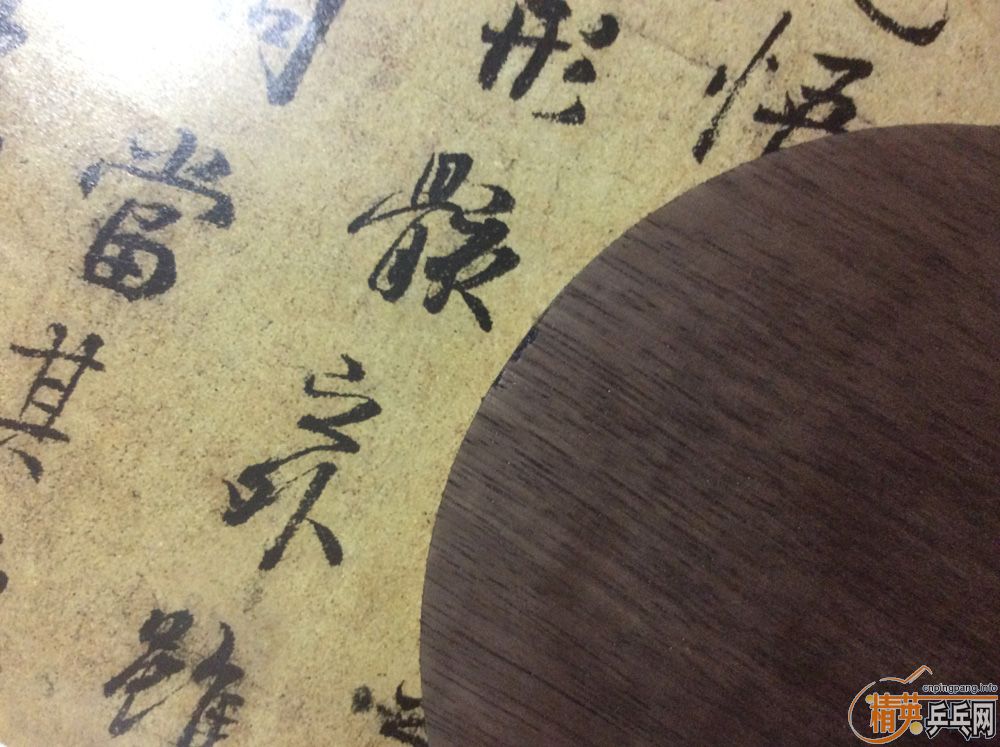 悟
形骸之外雖
當其
cnpingpang.info
精英乒乓网